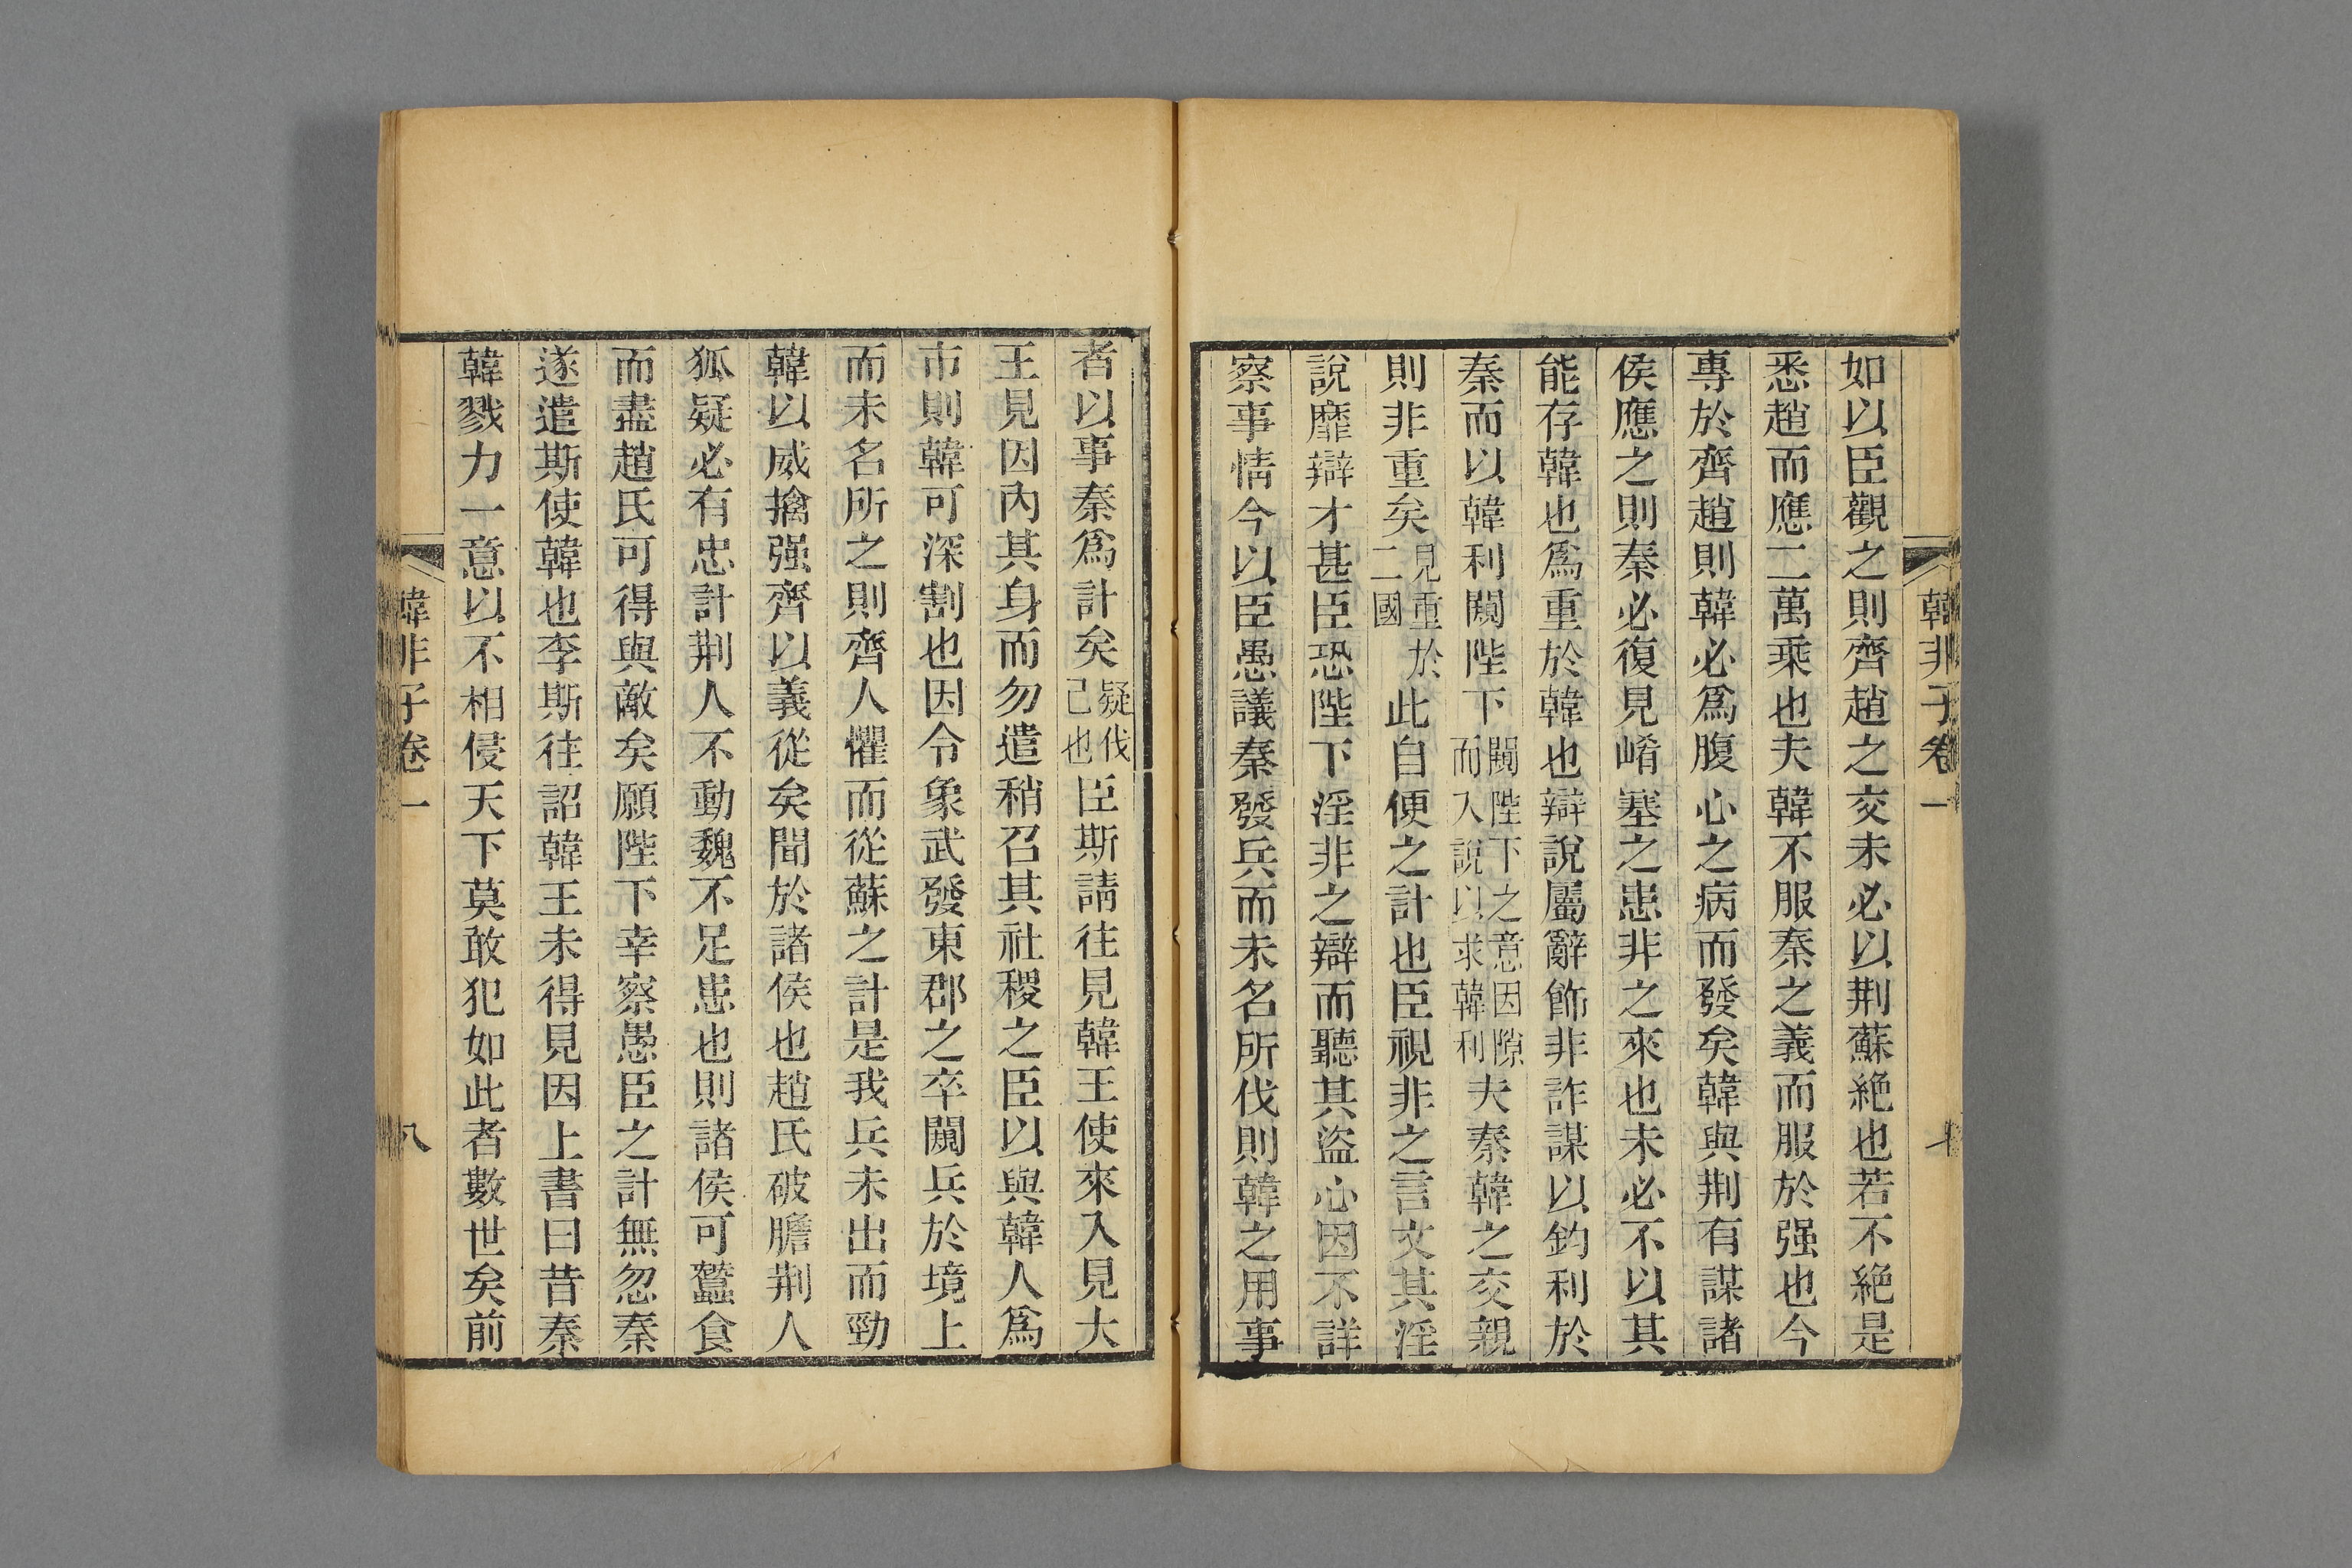 韓非子卷一
七
如以臣觀之則齊趙之交未必以荆蘇絶也若不絶是
悉趙而應二萬乘也夫韓不服秦之義而服於强也今
專於齊趙則韓必爲腹心之病而發矣韓與荆有謀諸
侯應之則秦必復見崤塞之患非之來也未必不以其
能存韓也爲重於韓也辯說屬辭飾非詐謀以釣利於
秦而以韓利闚陛下闚陛下之意因隙而入說以求韓利夫秦韓之交親
則非重矣見重於二國此自便之計也臣視非之言文其淫
說靡辯才甚臣恐陛下淫非之辯而聽其盜心因不詳
察事情今以臣愚議秦發兵而未名所伐則韓之用事
者以事秦爲計矣疑伐己也臣斯請往見韓王使來入見大
王見因內其身而勿遣稍召其社稷之臣以與韓人爲
市則韓可深割也因令象武發東郡之卒闚兵於境上
而未名所之則齊人懼而從蘇之計是我兵未出而勁
韓以威擒强齊以義從矣聞於諸侯也趙氏破膽荆人
狐疑必有忠計荆人不動魏不足患也則諸侯可蠶食
而盡趙氏可得與敵矣願陛下幸察愚臣之計無忽秦
遂遣斯使韓也李斯往詔韓王未得見因上書曰昔秦
韓戮力一意以不相侵天下莫敢犯如此者數世矣前
韓非子卷一
八